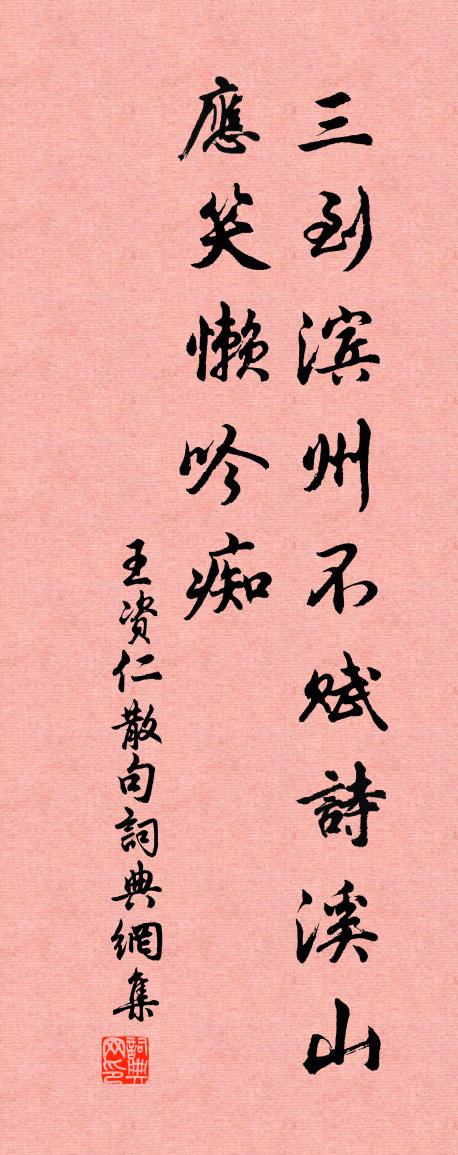 三到滨州不赋詩溪山
應笑懒吟痴
王资仁散句詞典網集
詞典网印